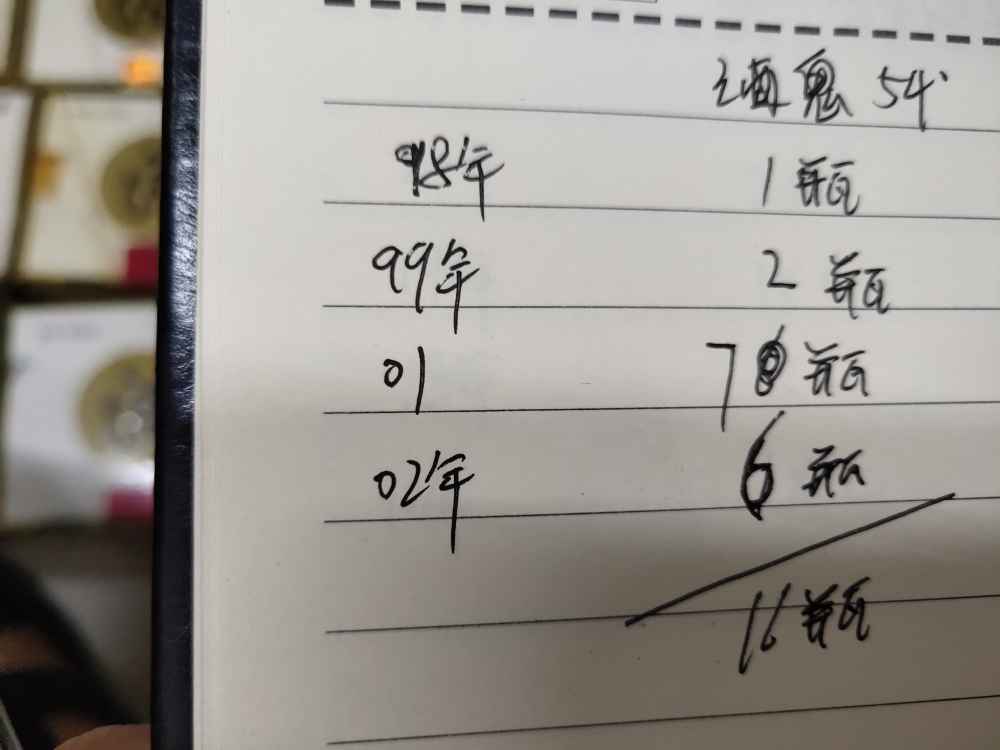 酒鬼 54°
98年 1瓶
99年 2瓶
01 7瓶
02年 6瓶
16瓶